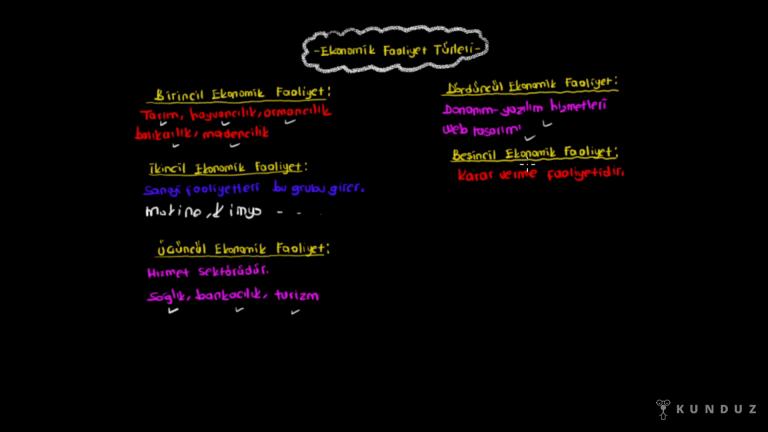 -Ekonomik Faaliyet Türleri-
Birincil Ekonomik Faaliyet:
Tarım, hayvancılık, ormancılık
balıkçılık, madencilik
İkincil Ekonomik Faaliyet:
Sanayi faaliyetleri bu gruba girer.
makina, kimya - - . .
Üçüncül Ekonomik Faaliyet:
Hizmet sektörüdür.
Sağlık, bankacılık, turizm
Dördüncül Ekonomik Faaliyet:
Donanım-yazılım hizmetleri
Web tasarımı
Beşincil Ekonomik Faaliyet:
Karar verme faaliyetidir.
KUNDUZ